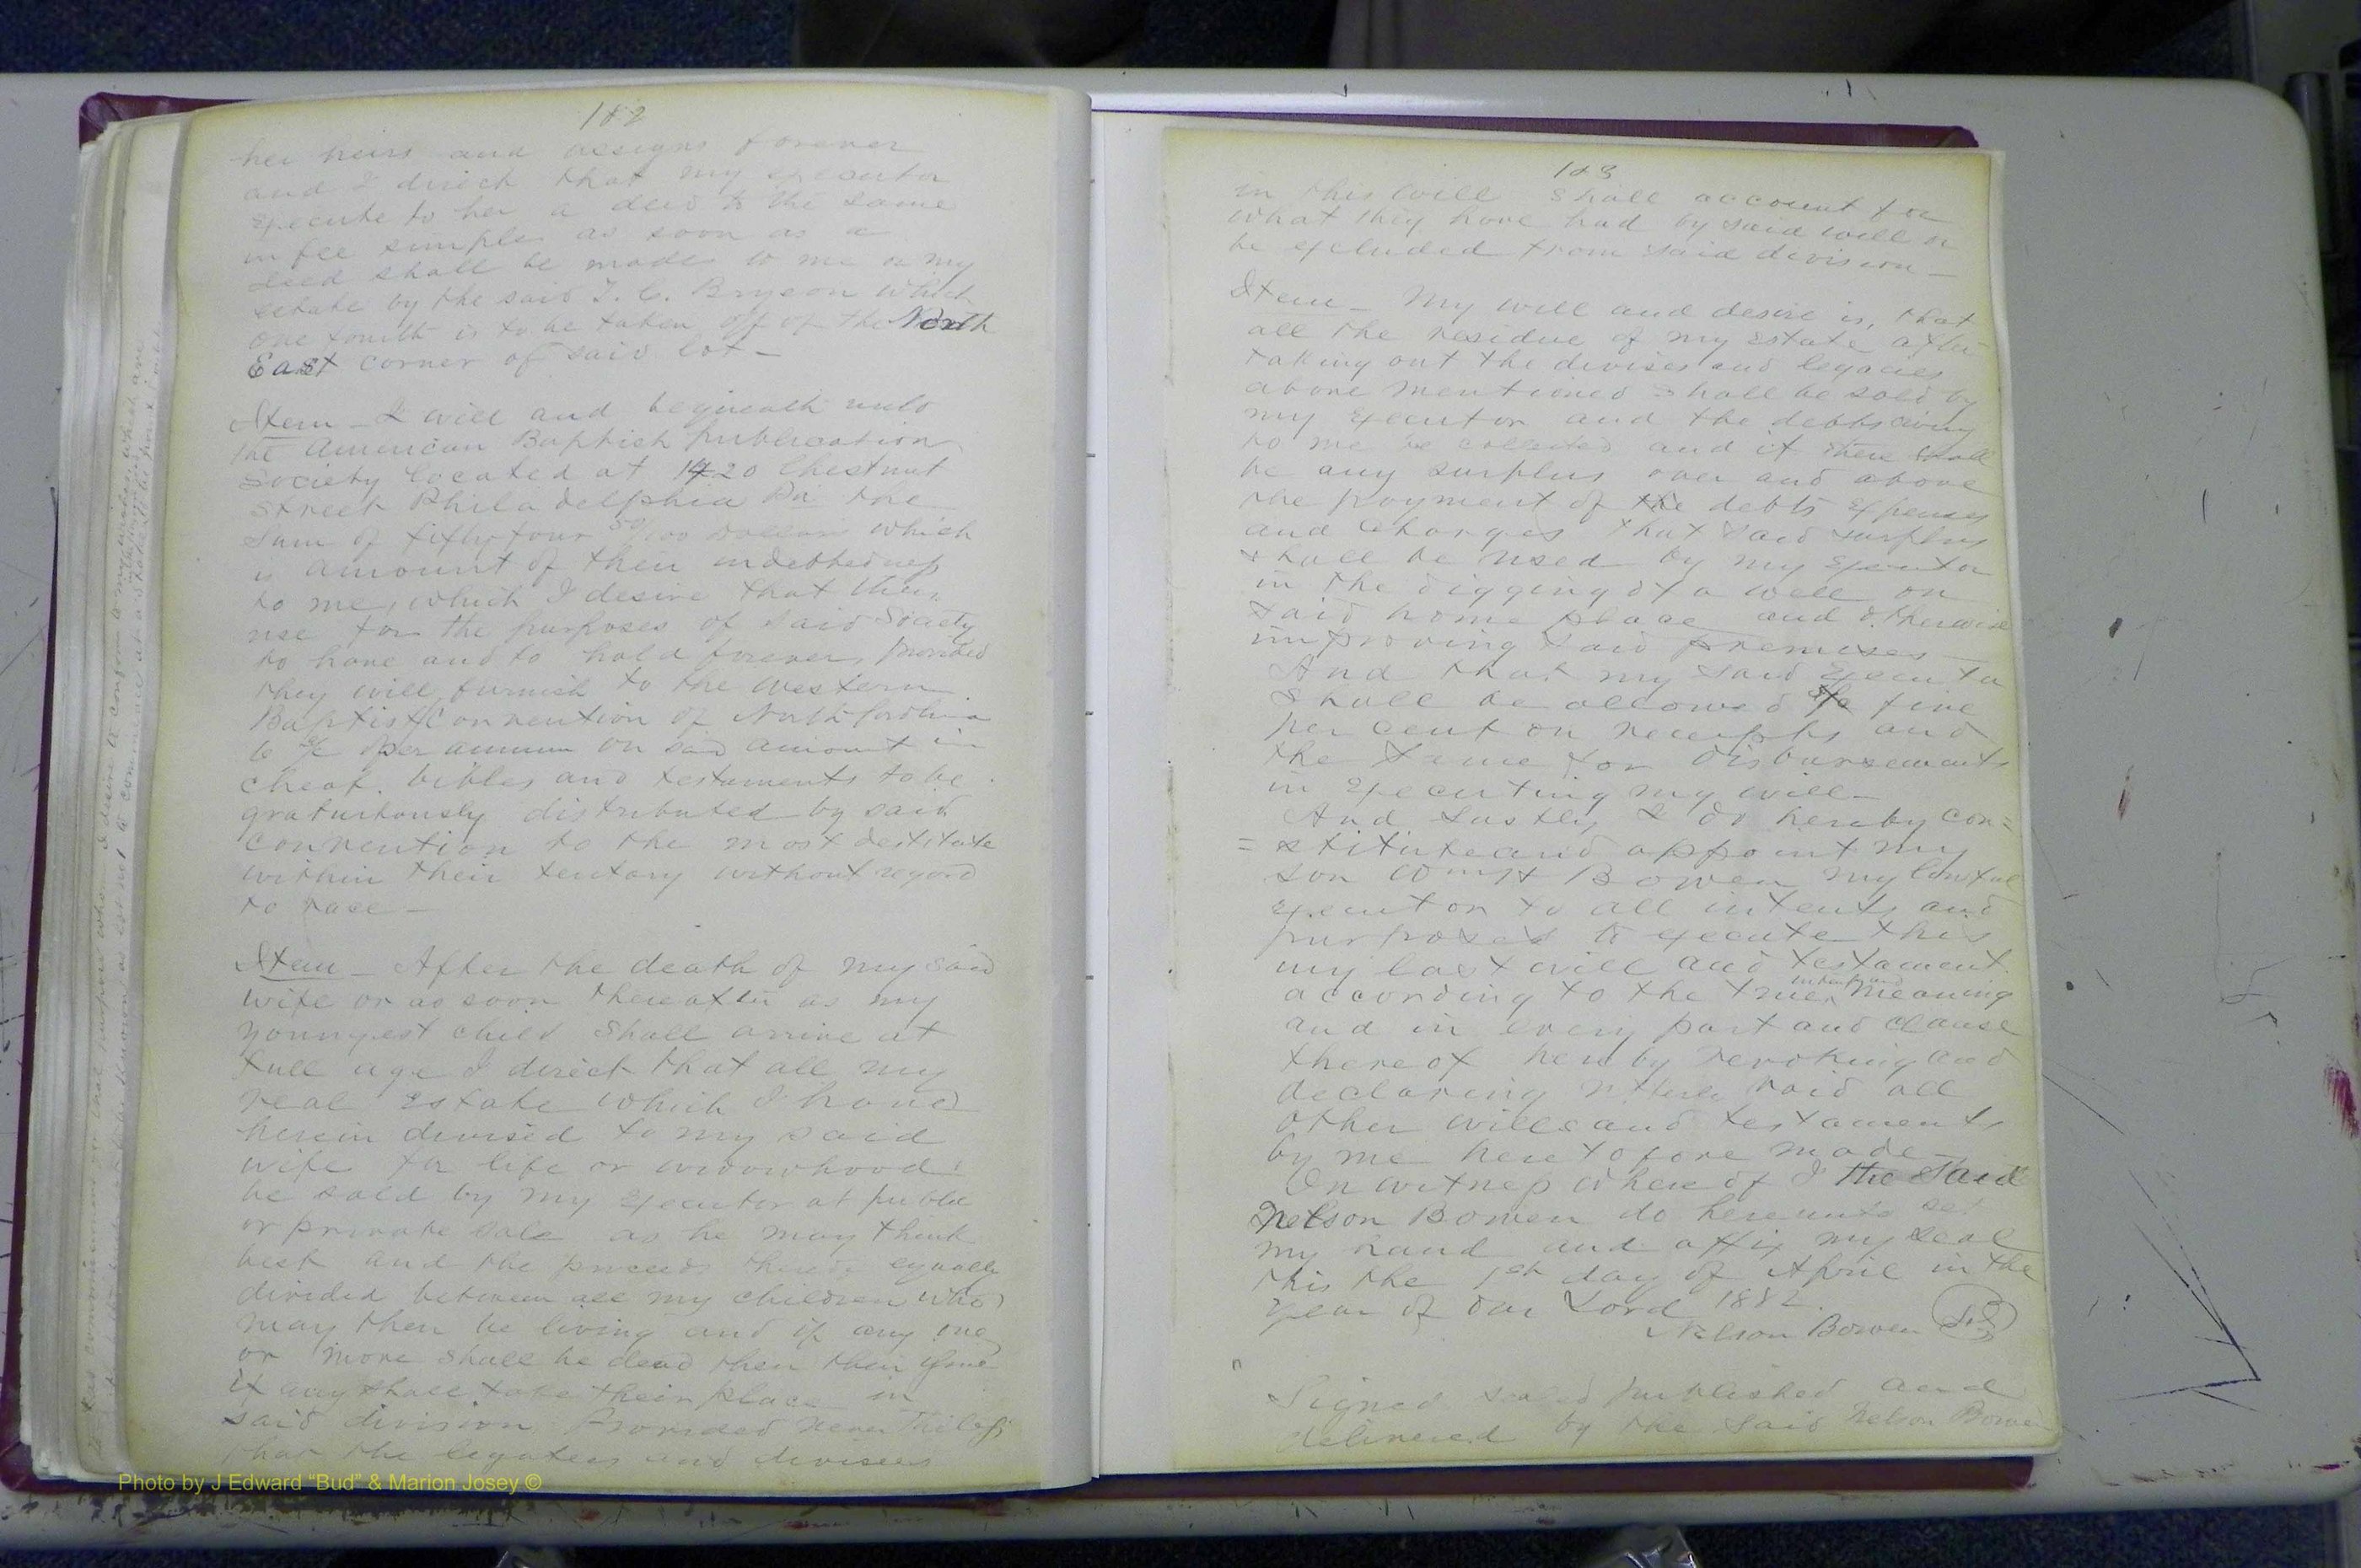 182
her heirs and assigns forever
and I direct that my executor
execute to her a deed to the same
in fee simple as soon as a
deed shall be made to me or my
estate by the said T. C. Bryson which
one fourth is to be taken off of the North
East corner of said lot -
Item - I will and bequeath unto
the American Baptist Publication
Society located at 1420 Chestnut
Street Philadelphia Pa. the
sum of fifty four 50/100 Dollars which
is amount of their indebtedness
to me, which I desire that they
use for the purposes of said Society
to have and to hold forever, provided
they will furnish to the Western
Baptist Convention of North Carolina
6 % per annum on said amount in
cheap bibles and testaments to be
gratuitously distributed by said
convention to the most destitute
within their teritory without regard
to race -
Item - After the death of my said
wife or as soon thereafter as my
youngest child shall arrive at
full age I direct that all my
real estate which I have
herein devised to my said
wife for life or widowhood
be sold by my executor at public
or private sale as he may think
best and the proceeds thereof equally
divided between all my children who
may then be living and if any one
or more shall be dead then their issue
if any shall take their place in
said division Provided never theless
that the legatees and devisees
183
in this will shall account for
what they have had by said will or
be excluded from said division -
Item - My will and desire is, that
all the residue of my estate after
taking out the devises and legacies
above mentioned shall be sold by
my executor and the debts owing
to me be collected and if there shall
be any surplus over and above
the payment of the debts expenses
and charges that said surplus
shall be used by my executor
in the digging of a well on
said home place and otherwise
improving said premises -
And that my said executor
shall be allowed five
per cent on receipts and
the same for disbursements
in executing my will -
And lastly, I do hereby con=
=stitute and appoint my
son Bowen my lawful
executor to all intents and
purposes to execute this
my last will and testament
according to the true intent and meaning
and in every part and clause
thereof hereby revoking and
declaring utterly void all
other wills and testaments
by me heretofore made -
In witness whereof I the said
Nelson Bowen do hereunto set
my hand and affix my seal
this the 1st day of April in the
year of our Lord 1882.
Nelson Bowen
Signed sealed published and
delivered by the said Nelson Bowen
Photo by J Edward “Bud” & Marion Josey ©